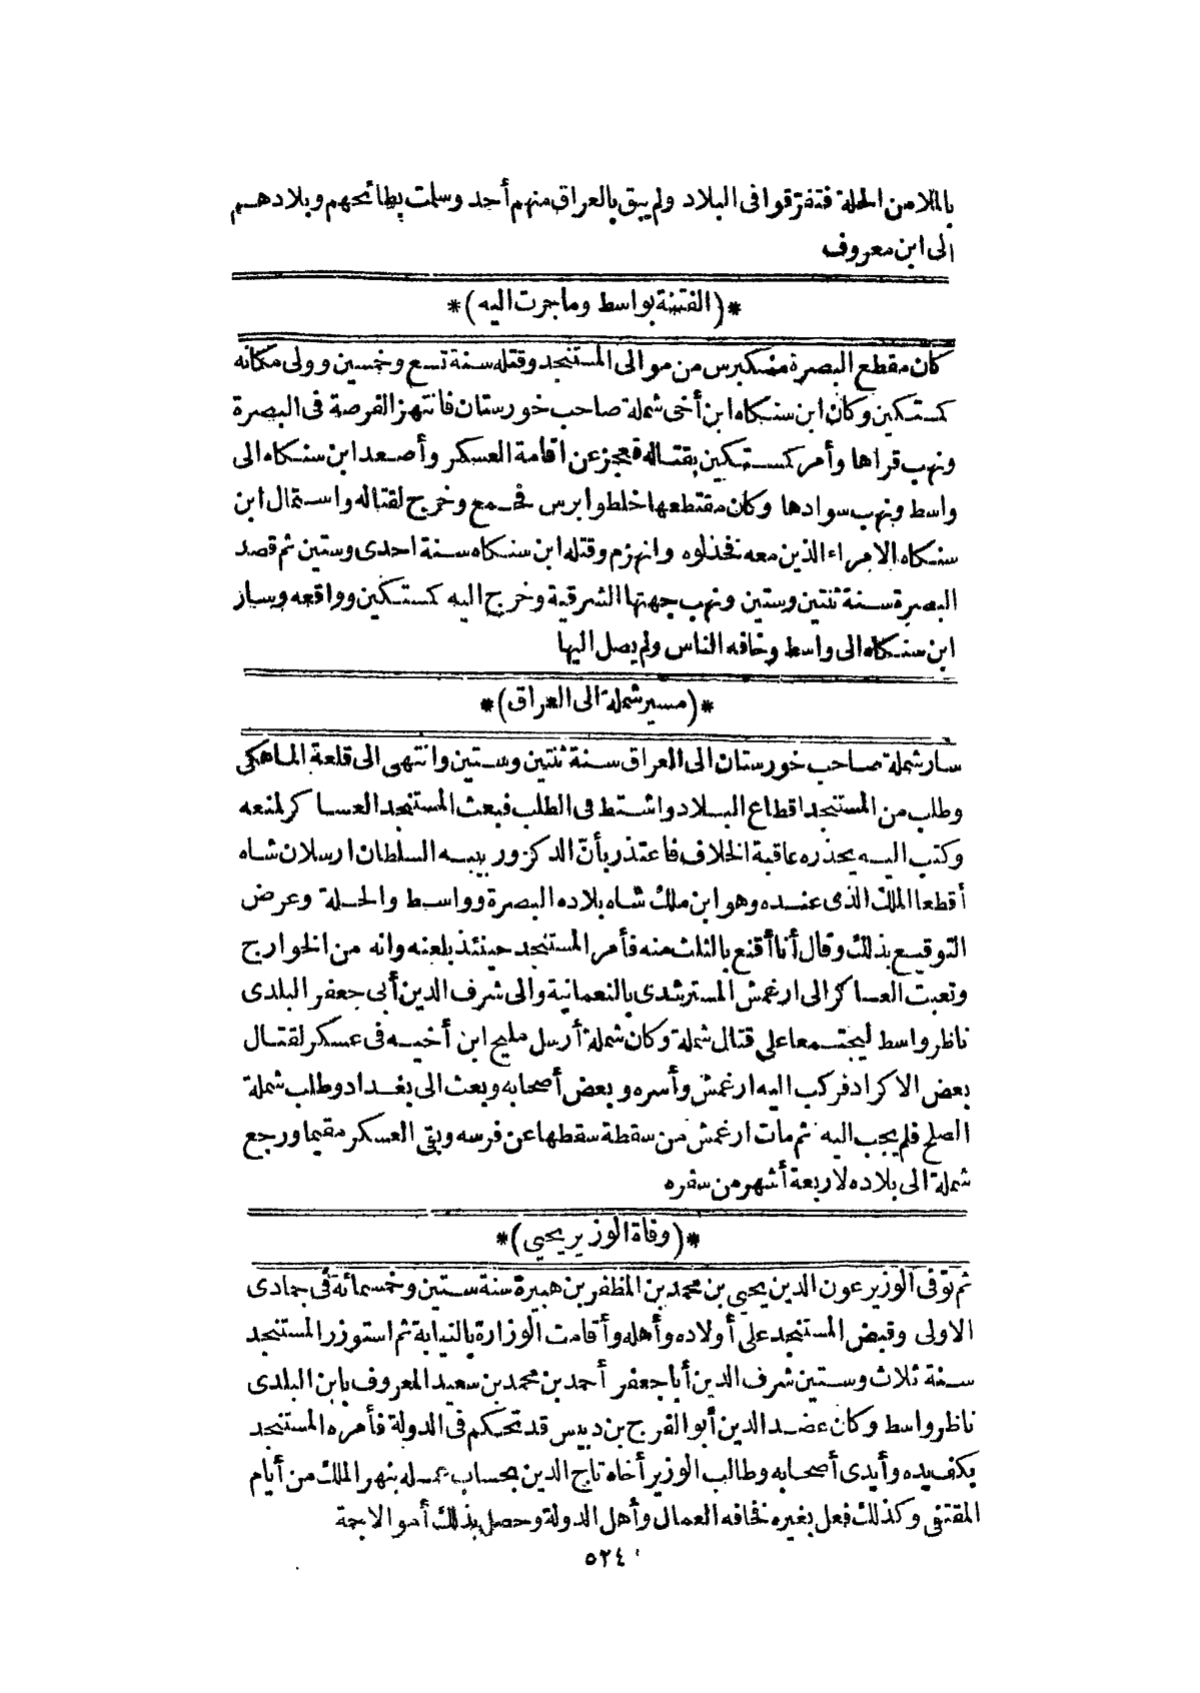 بالملا من الحلة فتفرّقوا فى البلاد ولم يبق بالعراق منهم أحد وسلت بطائحهم وبلادهم
الى ابن معروف
*(الفتنة بواسط وما جرت اليه)*
كان مقطع البصرة منكبرس من موالى المستنجد وقتله سنة تسع وخمسين وولى مكانه
كمستكين وكان ابن سنكاه ابن أخى شملة صاحب خورستان فانتهز الفرصة فى البصرة
ونهب قراها وأمر كمستكين بقتاله فعجز عن اقامة العسكر وأصعد ابن سنكاه الى
واسط ونهب سوادها وكان مقتطعها خلطوا برس فجمع وخرج لقتاله واستمال ابن
سنكاه الامراء الذين معه فخذلوه وانهزم وقتله ابن سنكاه سنة احدى وستين ثم قصد
البصرة سنة ثنتين وستين ونهب جهتها الشرقية وخرج اليه كمستكين وواقعه وسار
ابن سنكاه الى واسط وخافه الناس ولم يصل اليها
*(مسير شملة الى العراق)*
سار شملة صاحب خورستان الى العراق سنة ثنتين وستين وانتهى الى قلعة الماهكى
وطلب من المستنجد اقطاع البلاد واشتط فى الطلب فبعث المستنجد العساكر لمنعه
وكتب اليه يحذره عاقبة الخلاف فاعتذر بأنّ الدكز وربيبه السلطان ارسلان شاه
أقطعا الملك الذى عنده وهو ابن ملك شاه بلاده البصرة وواسط والحلة وعرض
التوقيع بذلك وقال أنا أقنع بالثلث منه فأمر المستنجد حينئذ بلعنه وانه من الخوارج
وتعبت العساكر الى ارغمش المسترشدى بالنعمانية والى شرف الدين أبى جعفر البلدى
ناظر واسط ليجتمعا على قتال شملة وكان شملة أرسل مليح ابن أخيه فى عسكر لقتال
بعض الاكراد فركب اليه ارغمش وأسره وبعض أصحابه وبعث الى بغداد وطلب شملة
الصلح فلم يجب اليه ثم مات ارغمش من سقطة سقطها عن فرسه وبقى العسكر مقيما ورجع
شملة الى بلاده لاربعة أشهر من سفره
*(وفاة الوزير يحيى)*
ثم توفى الوزير عون الدين يحيى بن محمد بن المظفر بن هبيرة سنة ستين وخمسمائة فى جمادى
الاولى وقبض المستنجد على أولاده وأهله وأقامت الوزارة بالنيابة ثم استوزر المستنجد
سنة ثلاث وستين شرف الدين أبا جعفر أحمد بن محمد بن سعيد المعروف بابن البلدى
ناظر واسط وكان عضد الدين أبو الفرج بن دبيس قد تحكم فى الدولة فأمره المستنجد
بكف يده وأيدى أصحابه وطالب الوزير أخاه تاج الدين بحساب عمله بنهر الملك من أيام
المقتفى وكذلك فعل بغيره فخافه العمال وأهل الدولة وحصل بذلك أموالا جمة
٥٢٤